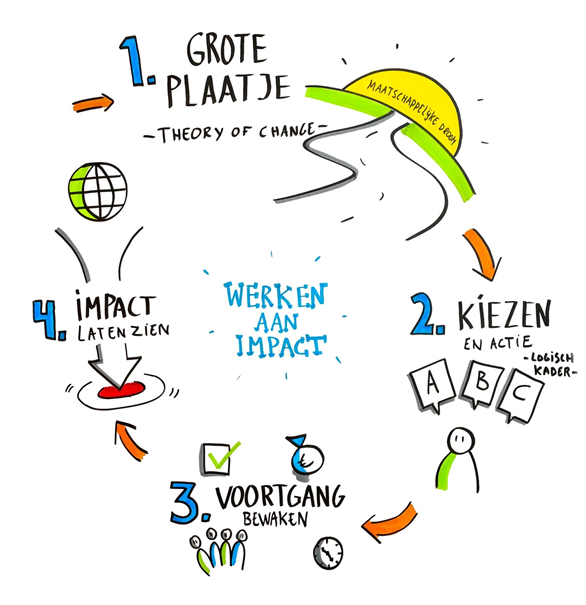 1. GROTE
PLAATJE
-THEORY OF CHANGE-
MAATSCHAPPELIJKE DROOM
2. KIEZEN
EN ACTIE
-LOGISCH
KADER-
A B C
3. VOORTGANG
BEWAKEN
€
4. IMPACT
LATEN ZIEN
WERKEN
AAN
IMPACT